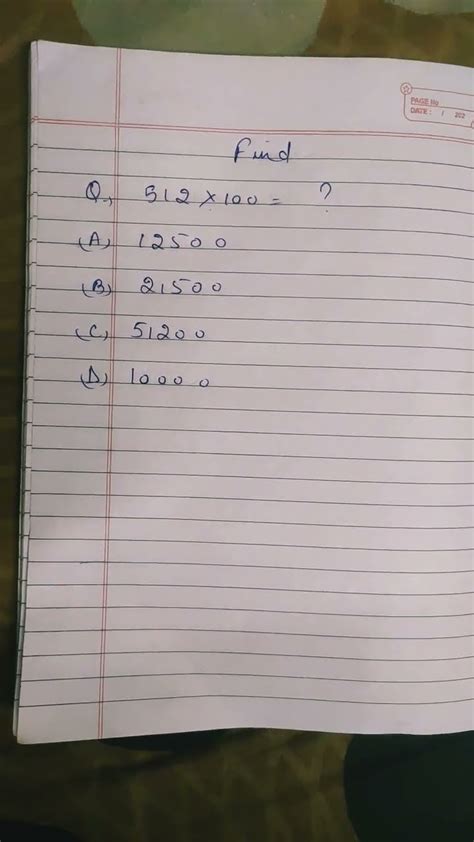 PAGE No
DATE: / 202
Find
Q., 512 × 100 = ?
(A) 12500
(B) 21500
(C) 51200
(D) 10000